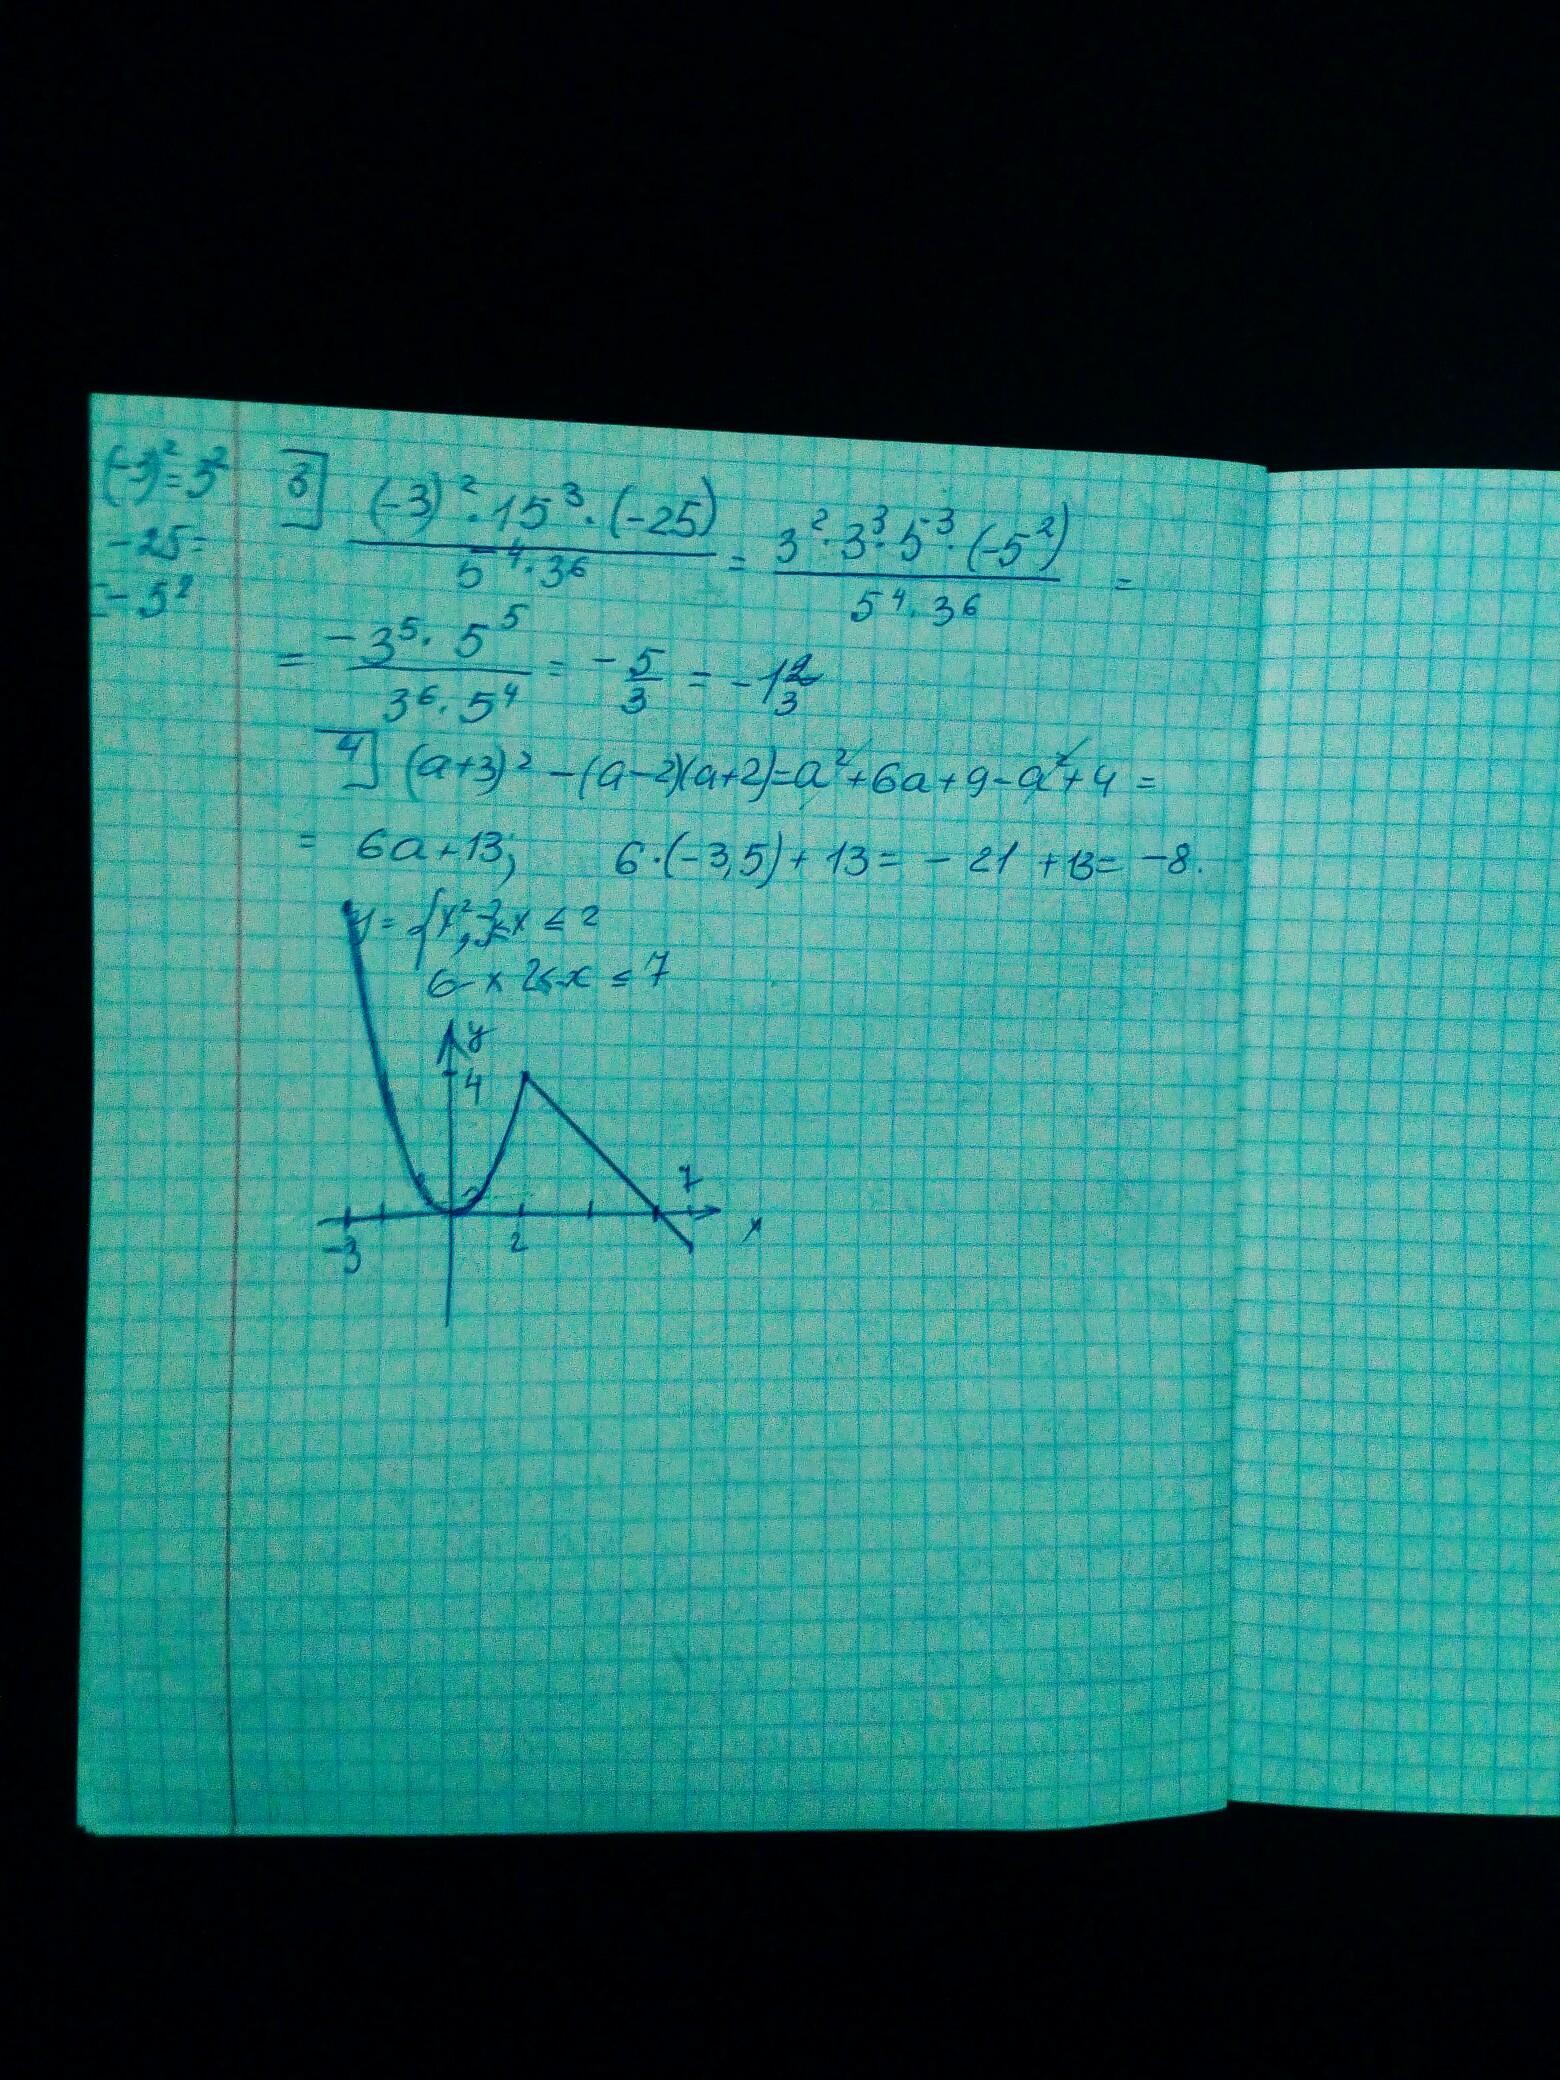 (-3)² = 3²
-25 =
= -5²
3] (-3)² · 15³ · (-25) / 5⁴ · 3⁶ = 3² · 3³ · 5³ · (-5²) / 5⁴ · 3⁶ =
= -3⁵ · 5⁵ / 3⁶ · 5⁴ = -5/3 = -1 2/3
4] (a+3)² - (a-2)(a+2) = a² + 6a + 9 - a² + 4 =
= 6a + 13; 6 · (-3,5) + 13 = -21 + 13 = -8.
y = { x², -3 ≤ x ≤ 2
6 - x 2 ≤ x ≤ 7
y
4
7
-3
2
x